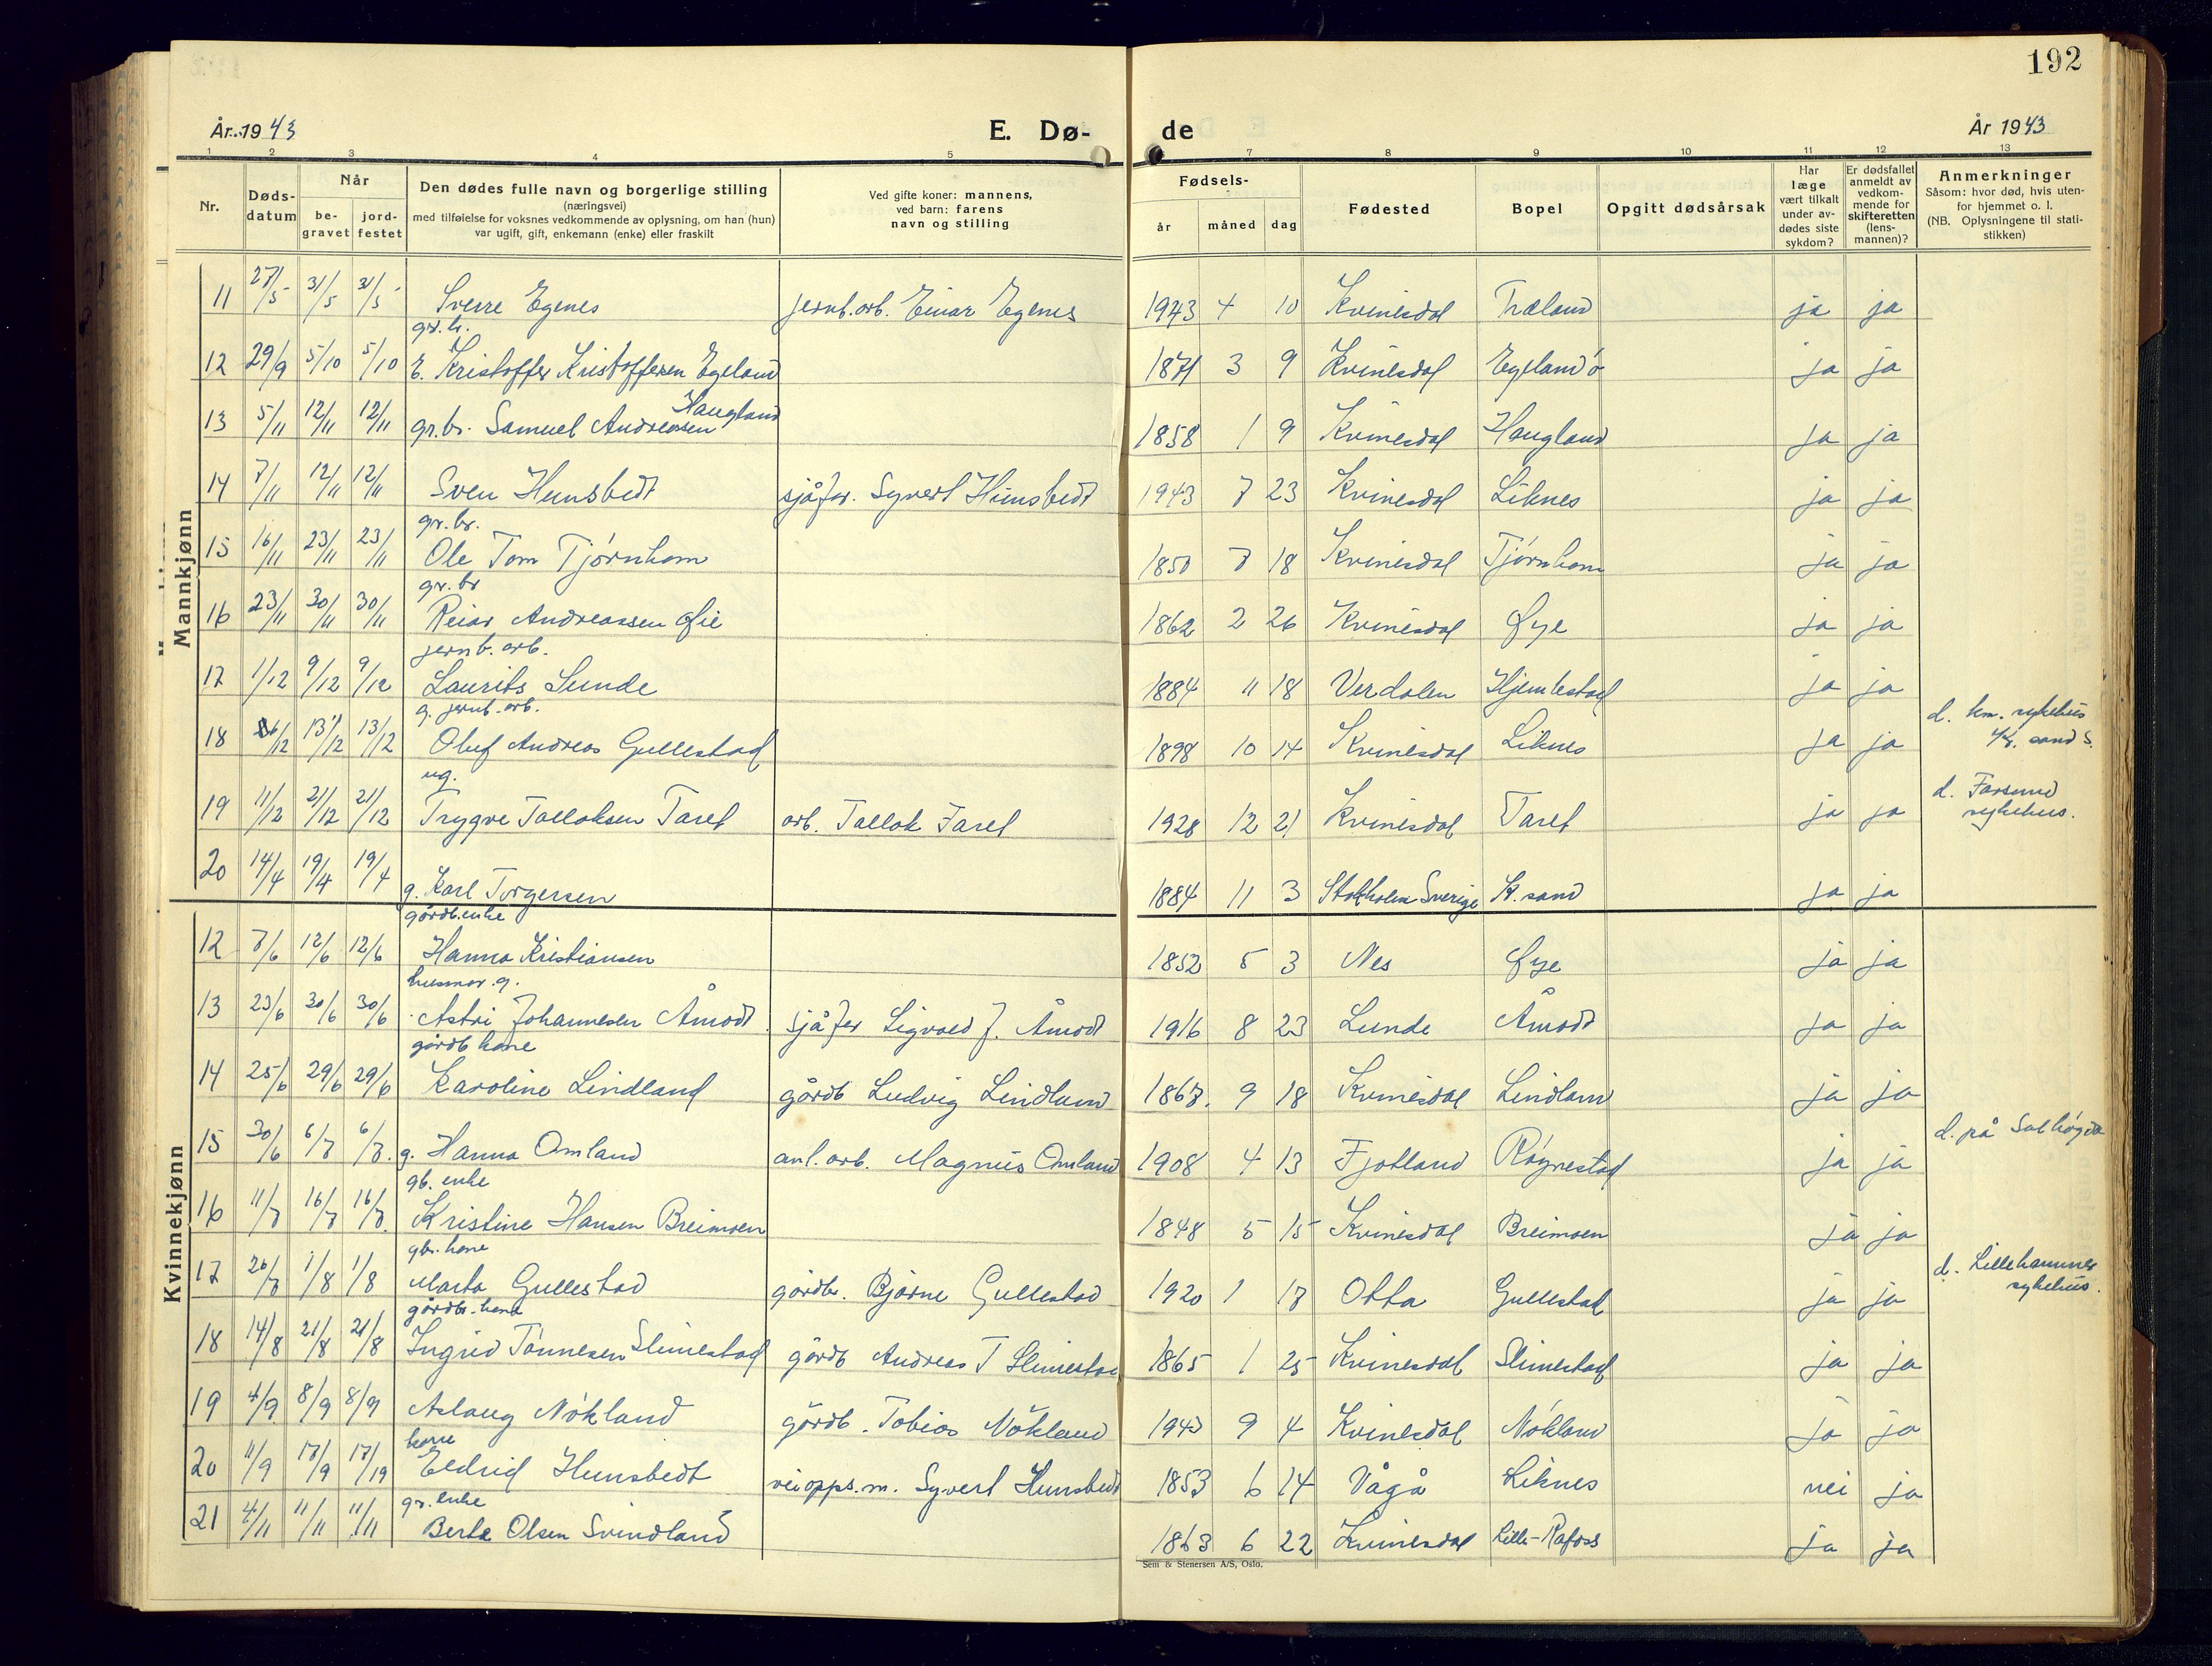 192
År 1943
E. Dø-
de
År 1943
1 2 3 4 5 7 8 9 10 11 12 13
Nr.
Døds-
datum
Når
be-
gravet
jord-
festet
Den dødes fulle navn og borgerlige stilling
(næringsvei)
med tilføielse for voksnes vedkommende av oplysning, om han (hun)
var ugift, gift, enkemann (enke) eller fraskilt
Ved gifte koner: mannens,
ved barn: farens
navn og stilling
Fødsels-
år måned dag
Fødested
Bopel
Opgitt dødsårsak
Har
læge
vært tilkalt
under av-
dødes siste
sykdom?
Er dødsfallet
anmeldt av
vedkom-
mende for
skifteretten
(lens-
mannen)?
Anmerkninger
Såsom: hvor død, hvis uten-
for hjemmet o. l.
(NB. Oplysningene til stati-
stikken)
Mannkjønn
11 27/5 31/5 31/5 Sverre Egenes jernb.arb. Einar Egenes 1943 4 10 Kvinesdal Træland ja ja
gr.br.
12 29/9 5/10 5/10 E. Kristoffer Kristoffersen Egeland 1871 3 9 Kvinesdal Egeland ja ja
Haugland
13 5/11 12/11 12/11 gr.br. Samuel Andreassen 1858 1 9 Kvinesdal Haugland ja ja
14 7/11 12/11 12/11 Sven Hunsbedt sjåfør. Syvert Hunsbedt 1943 7 23 Kvinesdal Liknes ja ja
gr.br.
15 16/11 23/11 23/11 Ole Tom Tjørnhom 1850 7 18 Kvinesdal Tjørnhom ja ja
gr.br
16 23/11 30/11 30/11 Reiar Andreassen Øie 1862 2 26 Kvinesdal Øye ja ja
jernb. arb.
17 1/12 9/12 9/12 Laurits Sunde 1884 11 18 Verdalen Hjemlestad ja ja
g. jernb. arb.
18 6/12 13/12 13/12 Oluf Andreas Gullestad 1898 10 14 Kvinesdal Liknes ja ja d. km. sykehus
Kr. sand S.
ug.
19 11/12 21/12 21/12 Trygve Tallaksen Faret arb. Tallak Faret 1928 12 21 Kvinesdal Faret ja ja d. Farsund
sykehus.
20 14/4 19/4 19/4 g. Karl Torgersen 1884 11 3 Stokholm Sverige Kr. sand ja ja
Kvinnekjønn
gårdb.enke
12 7/6 12/6 12/6 Hanna Kristiansen 1852 5 3 Nes Øye ja ja
husmor. g.
13 23/6 30/6 30/6 Astri Johannesen Åmodt sjåfør Sigvald J. Åmodt 1916 8 23 Lunde Åmodt ja ja
gårdb kone
14 25/6 29/6 29/6 Karoline Lindland gårdb Ludvig Lindland 1867. 9 18 Kvinesdal Lindland ja ja
15 30/6 6/7 6/7. g. Hanna Omland anl. arb. Magnus Omland 1908 4 13 Fjotland Røynestad ja ja d. på Solhøgda
gb. enke
16 11/7 16/7 16/7. Kristine Hansen Breimoen 1848 5 15 Kvinesdal Breimoen ja ja
gbr. kone
17 26/7 1/8 1/8 Marta Gullestad gårdbr. Bjarne Gullestad 1920 1 17 Otta Gullestad ja ja d. Lillehammer
sykehus.
gårdbr. kone
18 14/8 21/8 21/8 Ingrid Tønnesen Slimestad gårdb Andreas T Slimestad 1865 1 25 Kvinesdal Slimestad ja ja
19 4/9 8/9 8/9 Aslaug Nökland gårdb. Tobias Nökland 1943 9 4 Kvinesdal Nökland ja ja
kone
20 11/9 17/9 17/19 Eldrid Hunsbedt veiopps.m. Syvert Hunsbedt 1853 6 14 Vågå Liknes nei ja
gr. enke
21 4/11 11/11 11/11 Berta Olsen Svindland 1863 6 22 Kvinesdal Lille-Rafoss ja ja
Sem & Stenersen A/S, Oslo.